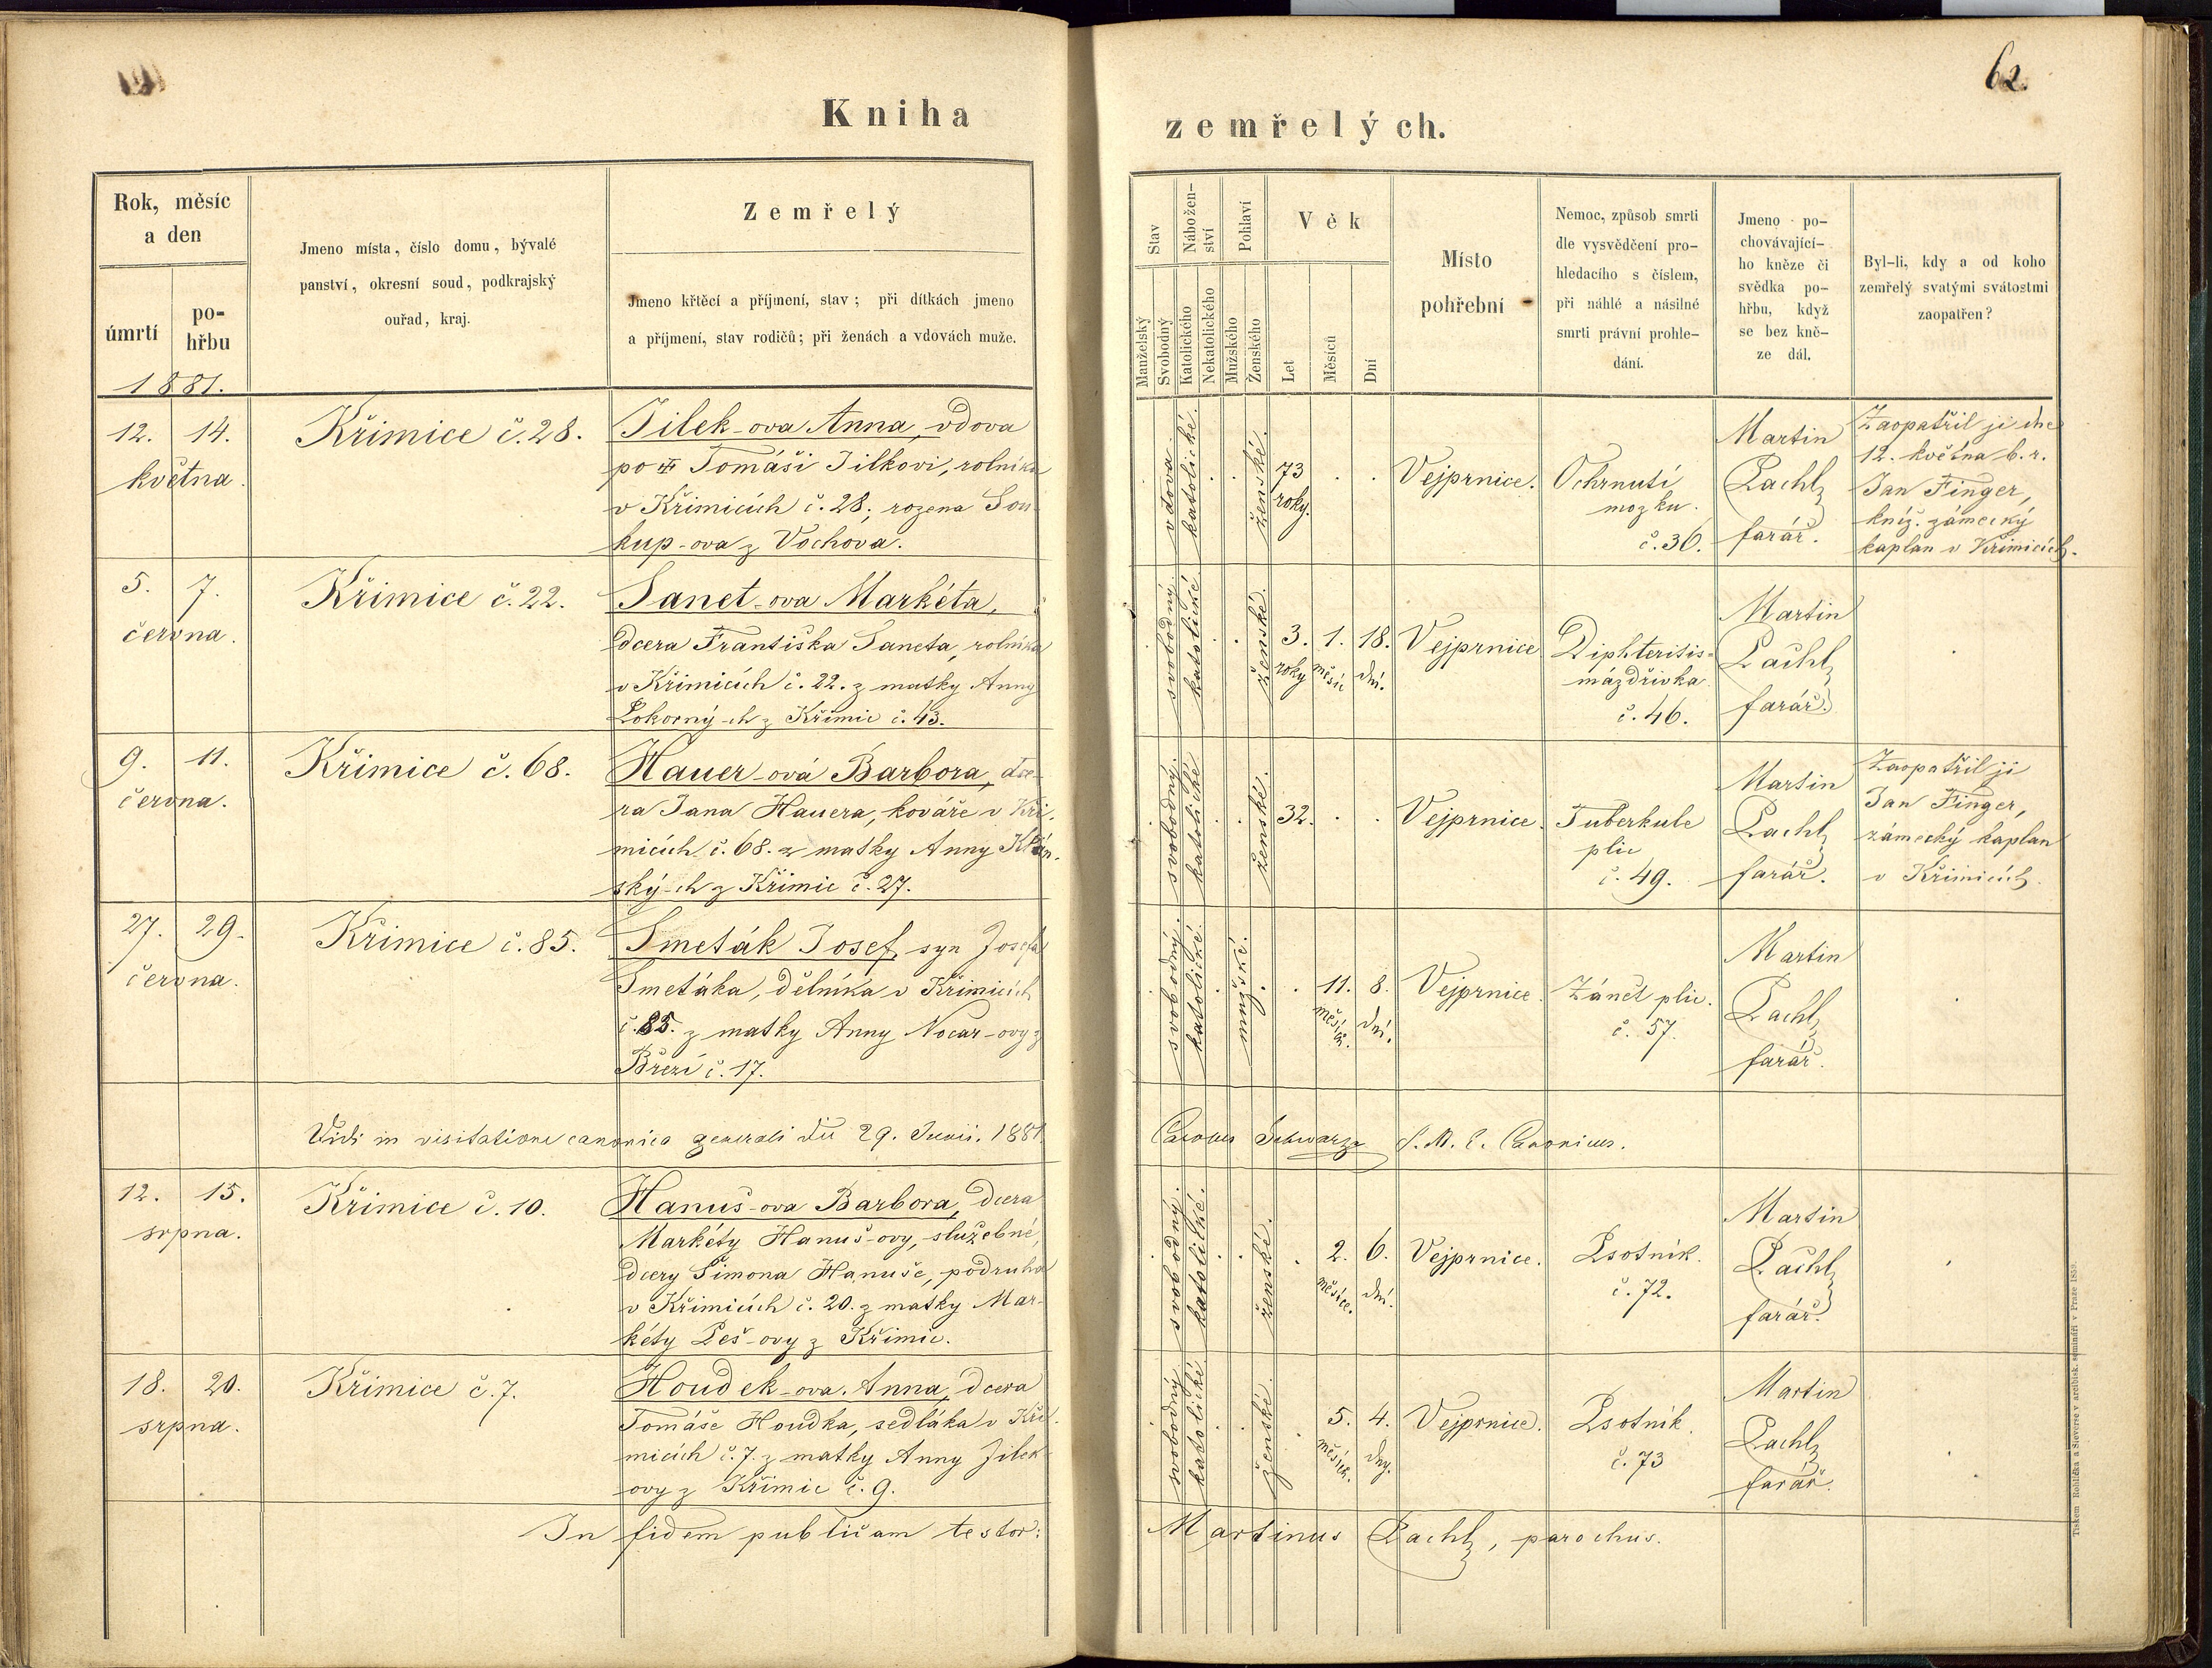 62.
Kniha zemřelých.
Rok, měsíc
a den
úmrtí
po-
hřbu
1881.
Jmeno místa, číslo domu, bývalé
panství, okresní soud, podkrajský
ouřad, kraj.
Zemřelý
Jmeno křtěcí a příjmení, stav; při dítkách jmeno
a příjmení, stav rodičů; při ženách a vdovách muže.
Stav
Manželský
Svobodný
Nábožen-
ství
Katolického
Nekatolického
Pohlaví
Mužského
Ženského
Věk
Let
Měsíců
Dní
Místo
pohřební
Nemoc, způsob smrti
dle vysvědčení pro-
hledacího s číslem,
při náhlé a násilné
smrti právní prohle-
dání.
Jmeno po-
chovávající-
ho kněze či
svědka po-
hřbu, když
se bez kně-
ze dál.
Byl-li, kdy a od koho
zemřelý svatými svátostmi
zaopatřen?
12. 14.
května.
Křimice č. 28.
Jilek-ova Anna, vdova
po Tomáši Jilkovi, rolníka
v Křimicích č. 28; rozena Sou-
kup-ova z Vochova.
vdova.
katolické.
ženské.
73
roky.
Vejprnice.
Ochrnutí
mozku.
č. 36.
Martin
Pachl,
farář.
Zaopatřil ji dne
12. května b. r.
Jan Finger,
kníž. zámecký
kaplan v Křimicích.
5. 7.
června.
Křimice č. 22.
Tanet-ova Markéta,
dcera Františka Taneta, rolníka
v Křimicích č. 22. z matky Anny
Pokorný-ch z Křimic č. 43.
svobodný.
katolické
ženské.
3. 1. 18.
roky měsíc dní.
Vejprnice
Diphteritis-
mázdřivka
č. 46.
Martin
Pachl,
farář.
9. 11.
června.
Křimice č. 68.
Hauer-ová Barbora, dce-
ra Jana Hauera, kováře v Kři-
micích č. 68. z matky Anny
ský-ch z Křimic č. 27.
svobodný.
katolické
ženské.
32.
Vejprnice.
Tuberkule
plic
č. 49.
Martin
Pachl,
farář.
Zaopatřil ji
Jan Finger,
zámecký kaplan
v Křimicích.
27. 29.
června.
Křimice č. 85.
Smeták Josef, syn Josefa
Smetáka, dělníka v Křimicích
č. 85. z matky Anny Nocar-ovy z
Březí č. 17.
svobodný.
katolické.
mužské.
11. 8.
měsíců. dní.
Vejprnice.
Zánět plic.
č. 57.
Martin
Pachl,
farář.
Vidi in visitatione canonica generali die 29. Junii. 1881. Schwarz Canonicus.
12. 15.
srpna.
Křimice č. 10.
Hanuš-ova Barbora, dcera
Markéty Hanuš-ovy, služebné,
dcery Šimona Hanuše, podruha
v Křimicích č. 20. z matky Mar-
kéty Peš-ovy z Křimic.
svobodný.
katolické.
ženské.
2. 6.
měsíce. dní.
Vejprnice.
Psotník.
č. 72.
Martin
Pachl,
farář.
18. 20.
srpna.
Křimice č. 7.
Houdek-ova Anna, dcera
Tomáše Houdka, sedláka v Kři-
micích č. 7. z matky Anny Jilek-
ovy z Křimic č. 9.
svobodný
katolické
ženské.
5. 4.
měsíců. dny.
Vejprnice.
Psotník.
č. 73
Martin
Pachl,
farář.
In fidem publicam testor: Martinus Pachl, parochus.
Tiskem Rohlíčka a Sieverse v arcibisk. semináři v Praze 1859.